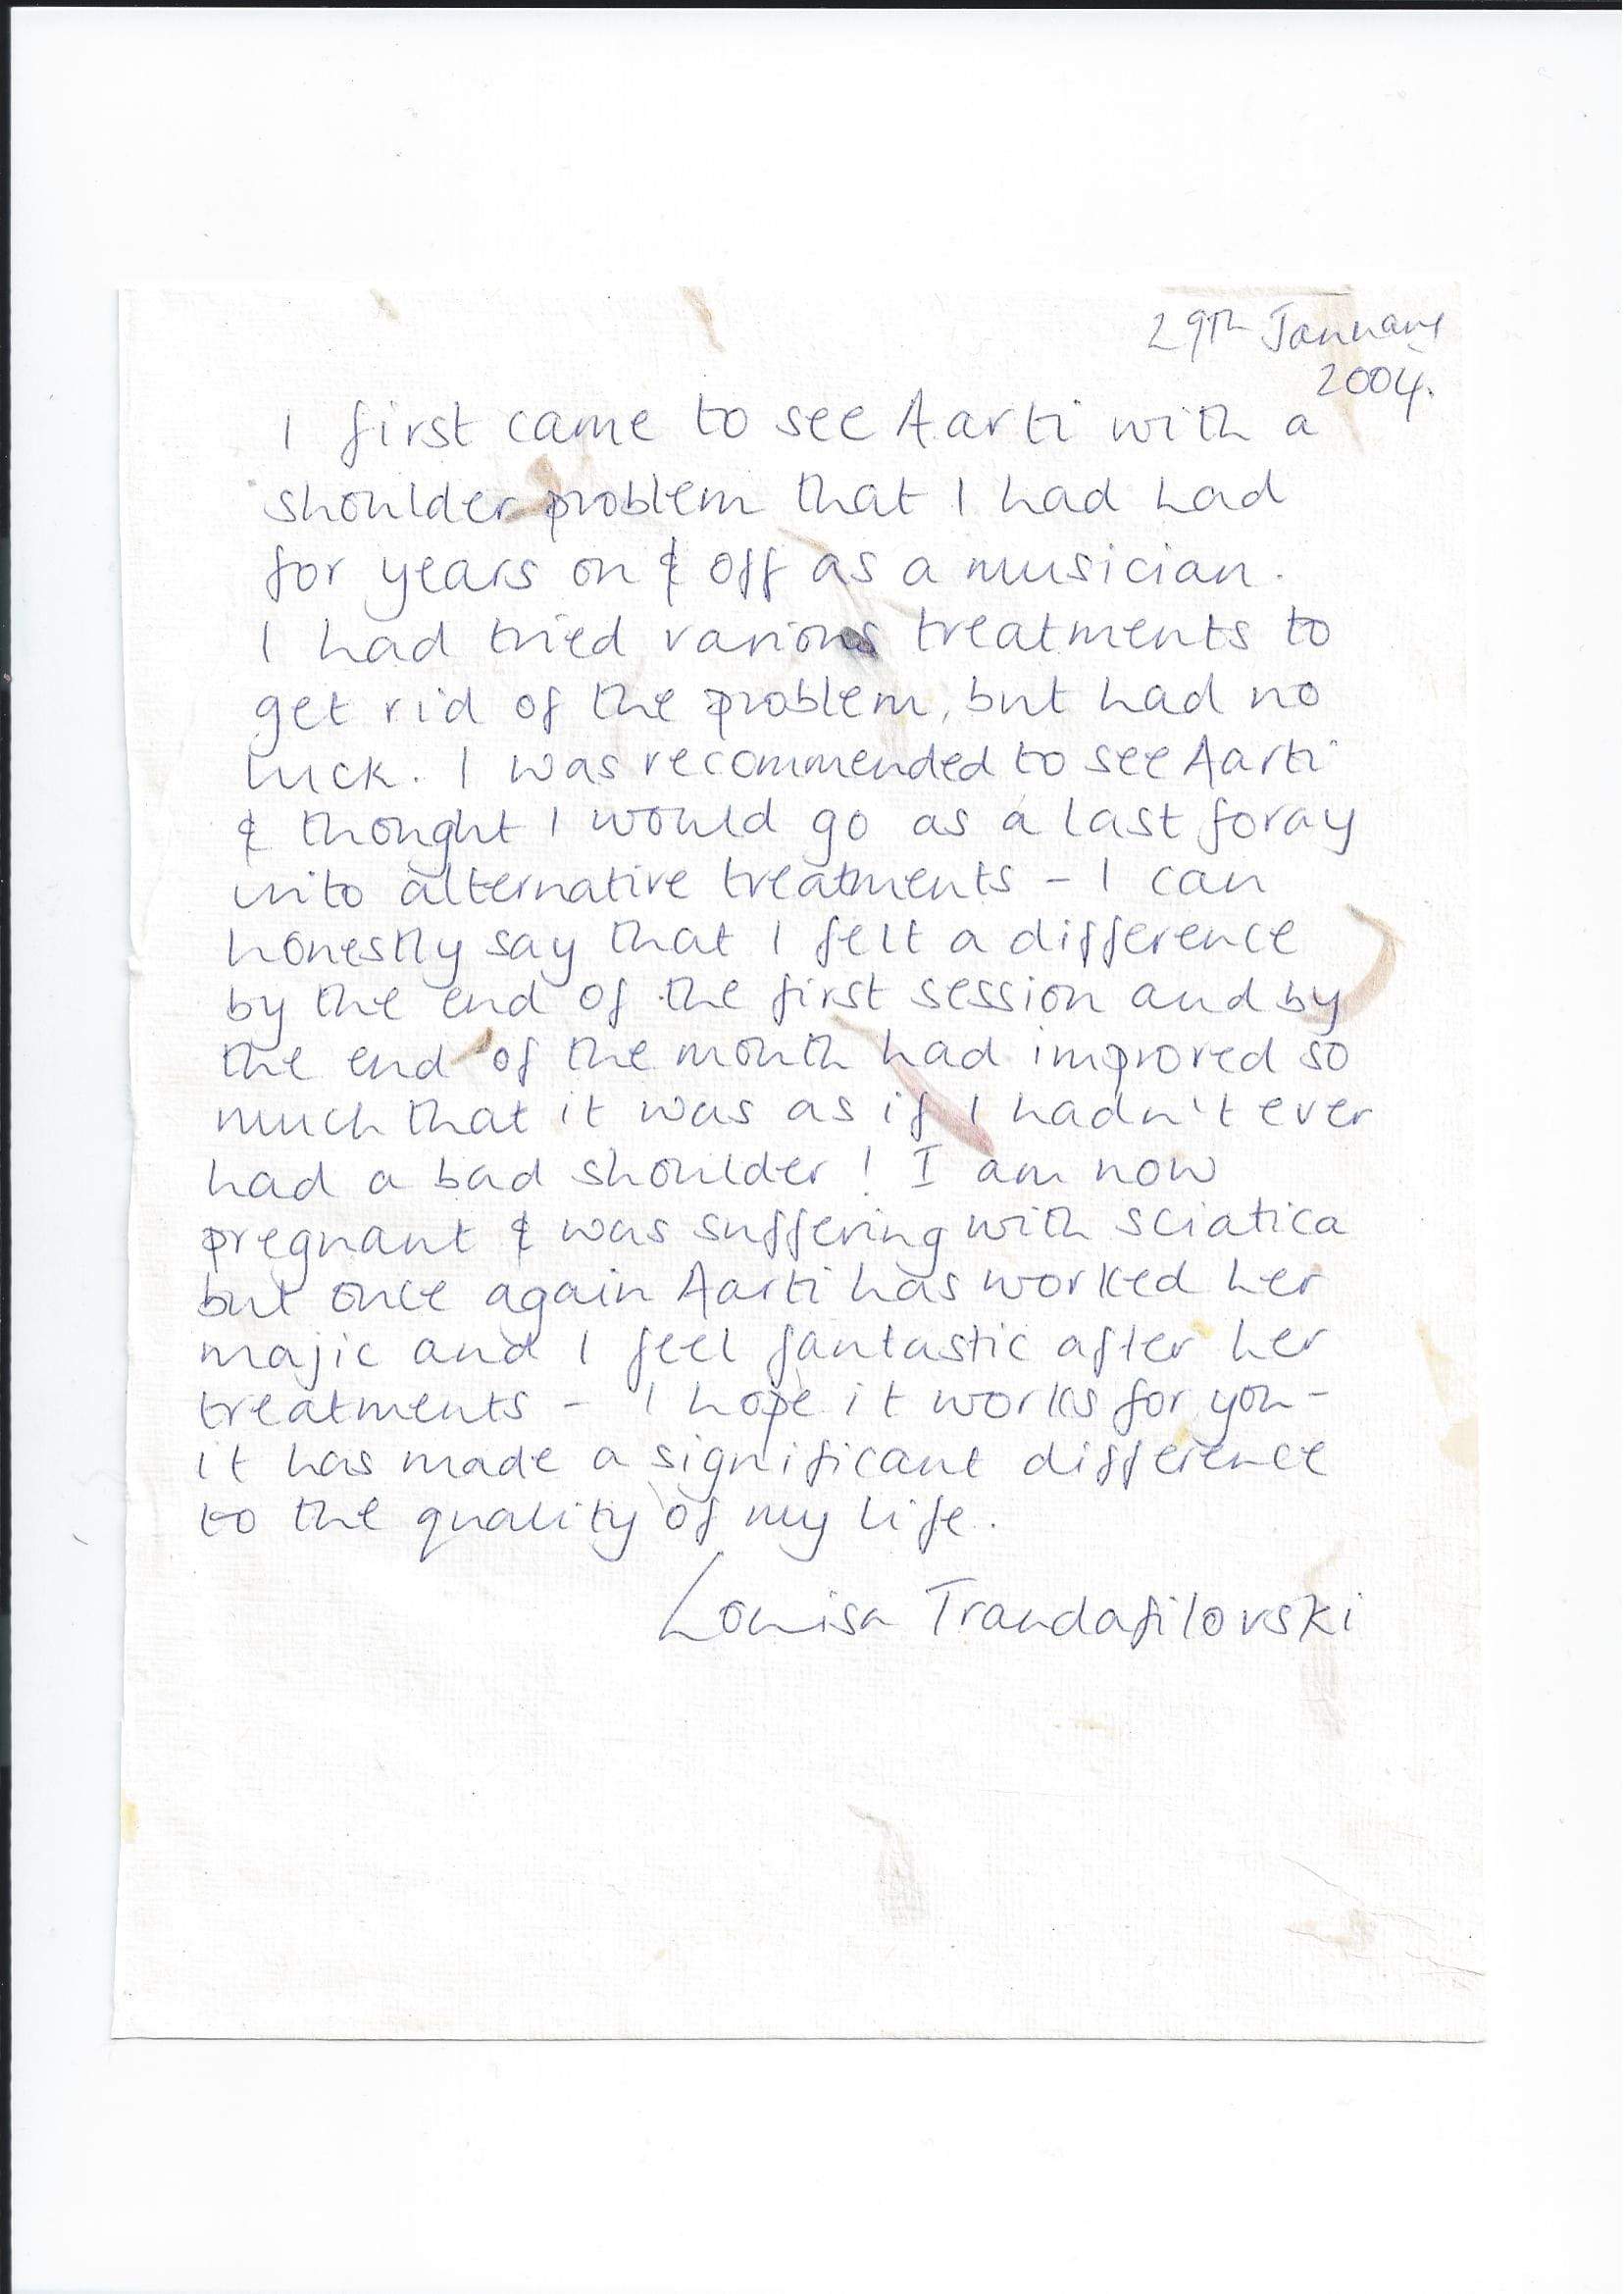 29th January
2004.
I first came to see Aarti with a
shoulder problem that I had had
for years on & off as a musician.
I had tried various treatments to
get rid of the problem, but had no
luck. I was recommended to see Aarti
& thought I would go as a last foray
into alternative treatments - I can
honestly say that I felt a difference
by the end of the first session and by
the end of the month had improved so
much that it was as if I hadn't ever
had a bad shoulder! I am now
pregnant & was suffering with sciatica
but once again Aarti has worked her
majic and I feel fantastic after her
treatments - I hope it works for you -
it has made a significant difference
to the quality of my life.
Louisa Trandafilovski